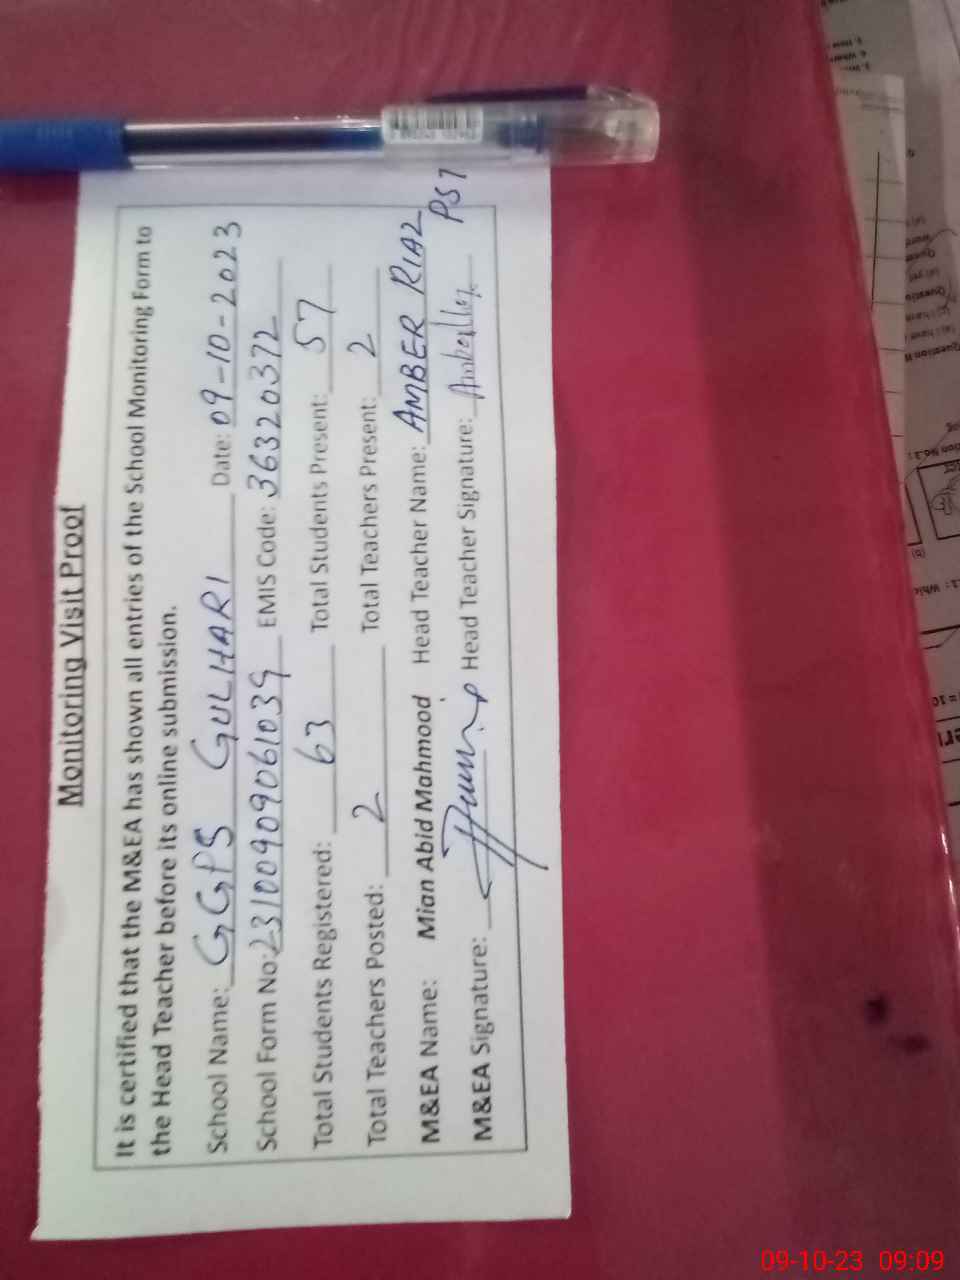 Monitoring Visit Proof
It is certified that the M&EA has shown all entries of the School Monitoring Form to
the Head Teacher before its online submission.
School Name: GGPS GULHARI Date: 09-10-2023
School Form No: 23100909061039 EMIS Code: 36320372
Total Students Registered: 63 Total Students Present: 57
Total Teachers Posted: 2 Total Teachers Present: 2
M&EA Name: Mian Abid Mahmood Head Teacher Name: AMBER RIAZ
PST
M&EA Signature: Head Teacher Signature:
09-10-23 09:09